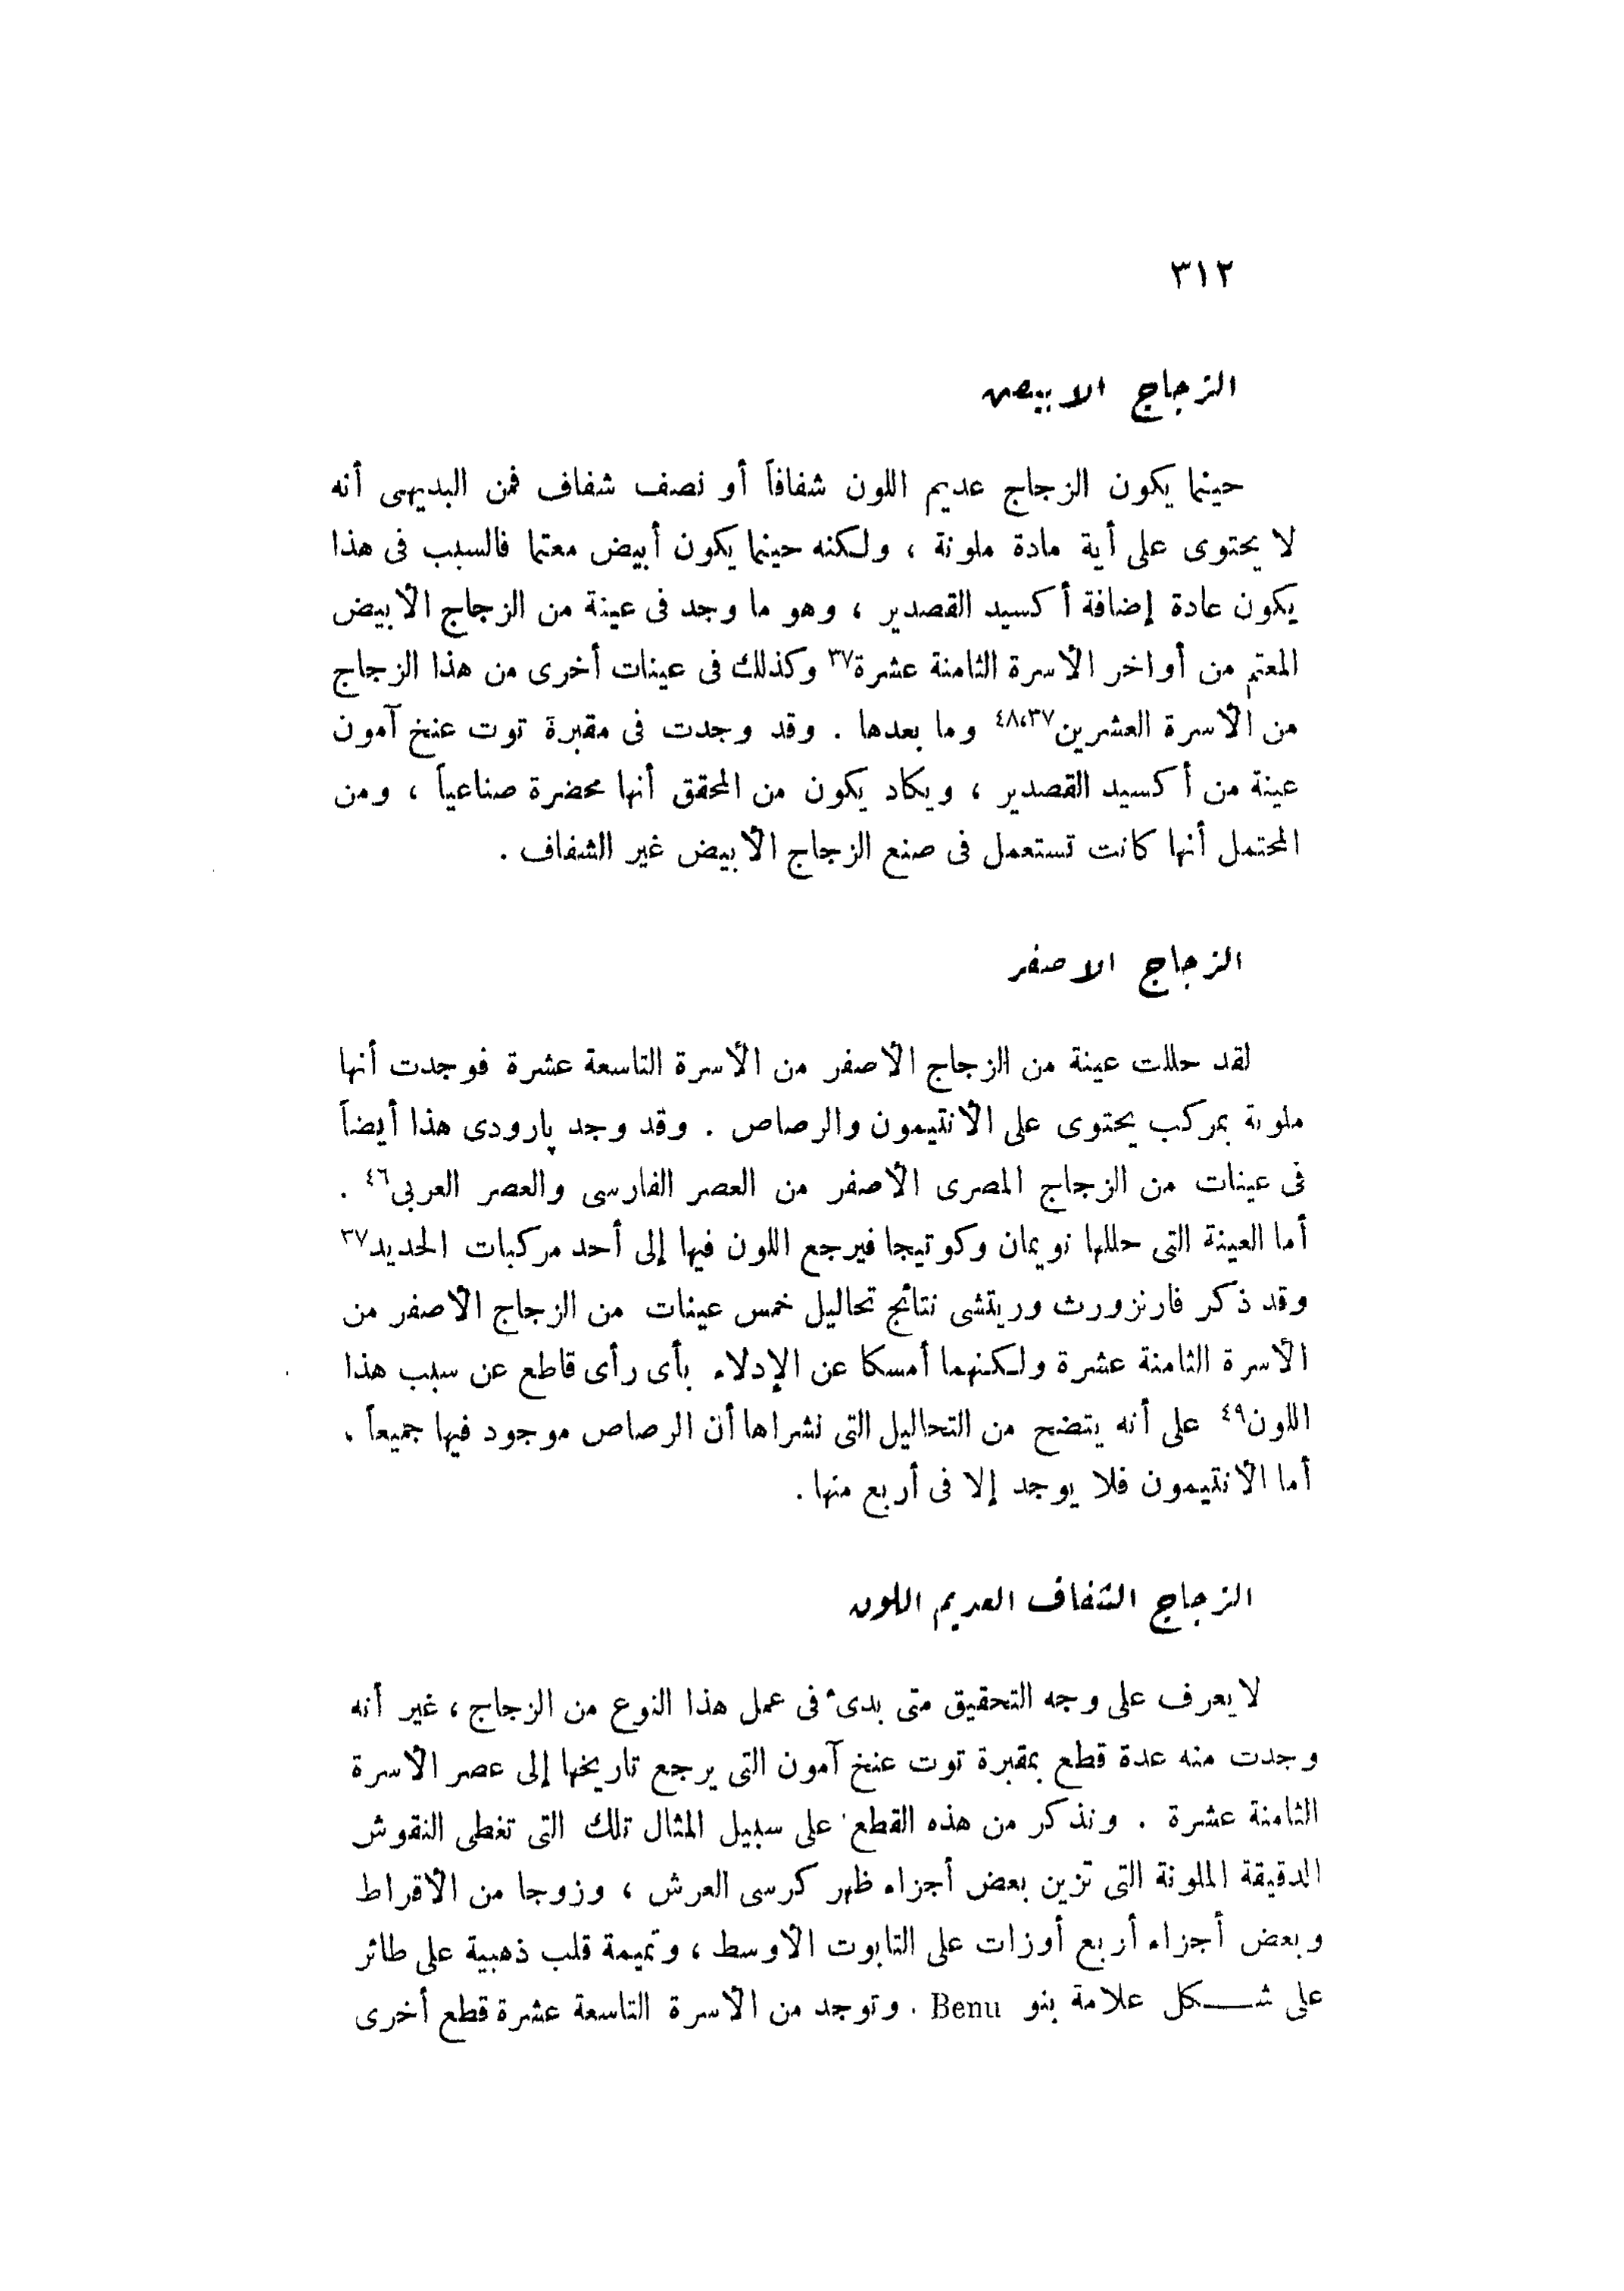 ٣١٢
الزجاج الابيض
حينما يكون الزجاج عديم اللون شفافاً أو نصف شفاف فمن البديهى أنه
لا يحتوى على أية مادة ملونة ، ولكنه حينما يكون أبيض معتما فالسبب فى هذا
يكون عادة إضافة أكسيد القصدير ، وهو ما وجد فى عينة من الزجاج الأبيض
المعتم من أواخر الأسرة الثامنة عشرة٣٧ وكذلك فى عينات أخرى من هذا الزجاج
من الأسرة العشرين٤٨،٣٧ وما بعدها . وقد وجدت فى مقبرة توت عنخ آمون
عينة من أكسيد القصدير ، ويكاد يكون من المحقق أنها محضرة صناعياً ، ومن
المحتمل أنها كانت تستعمل فى صنع الزجاج الأبيض غير الشفاف .
الزجاج الاصفر
لقد حللت عينة من الزجاج الأصفر من الأسرة التاسعة عشرة فوجدت أنها
ملونة بمركب يحتوى على الأنتيمون والرصاص . وقد وجد پارودى هذا أيضاً
فى عينات من الزجاج المصرى الأصفر من العصر الفارسى والعصر العربى٤٦ .
أما العينة التى حللها نويمان وكوتيجا فيرجع اللون فيها إلى أحد مركبات الحديد٣٧
وقد ذكر فارنزورث وريتشى نتائج تحاليل خمس عينات من الزجاج الأصفر من
الأسرة الثامنة عشرة ولكنهما أمسكا عن الإدلاء بأى رأى قاطع عن سبب هذا
اللون٤٩ على أنه يتضح من التحاليل التى نشراها أن الرصاص موجود فيها جميعاً .
أما الأنتيمون فلا يوجد إلا فى أربع منها .
الزجاج الشفاف العديم اللون
لا يعرف على وجه التحقيق متى بدىء فى عمل هذا النوع من الزجاج ، غير أنه
وجدت منه عدة قطع بمقبرة توت عنخ آمون التى يرجع تاريخها إلى عصر الأسرة
الثامنة عشرة . ونذكر من هذه القطع على سبيل المثال تلك التى تغطى النقوش
الدقيقة الملونة التى تزين بعض أجزاء ظهر كرسى العرش ، وزوجا من الأقراط
وبعض أجزاء أربع أوزات على التابوت الأوسط ، وتميمة قلب ذهبية على طائر
على شـــكل علامة بنو Benu . وتوجد من الأسرة التاسعة عشرة قطع أخرى